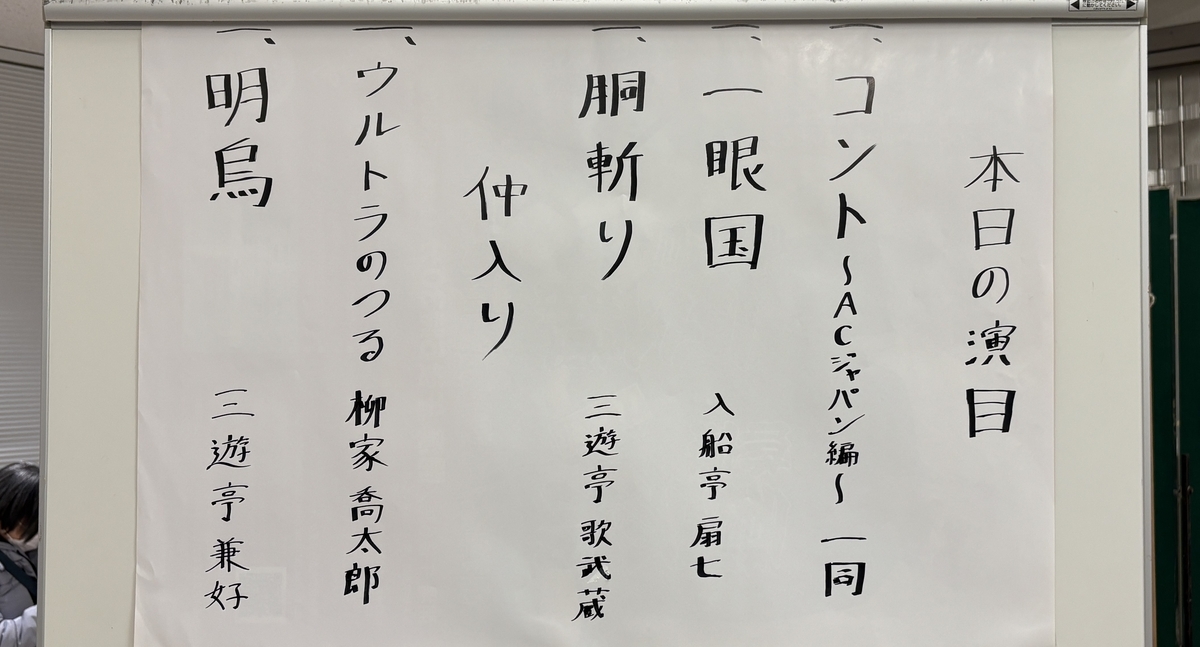 本日の演目
一、コント～ACジャパン編～ 一同
一、一眼国 入船亭扇七
一、胴斬り 三遊亭歌武蔵
仲入り
一、ウルトラのつる 柳家喬太郎
一、明烏 三遊亭兼好